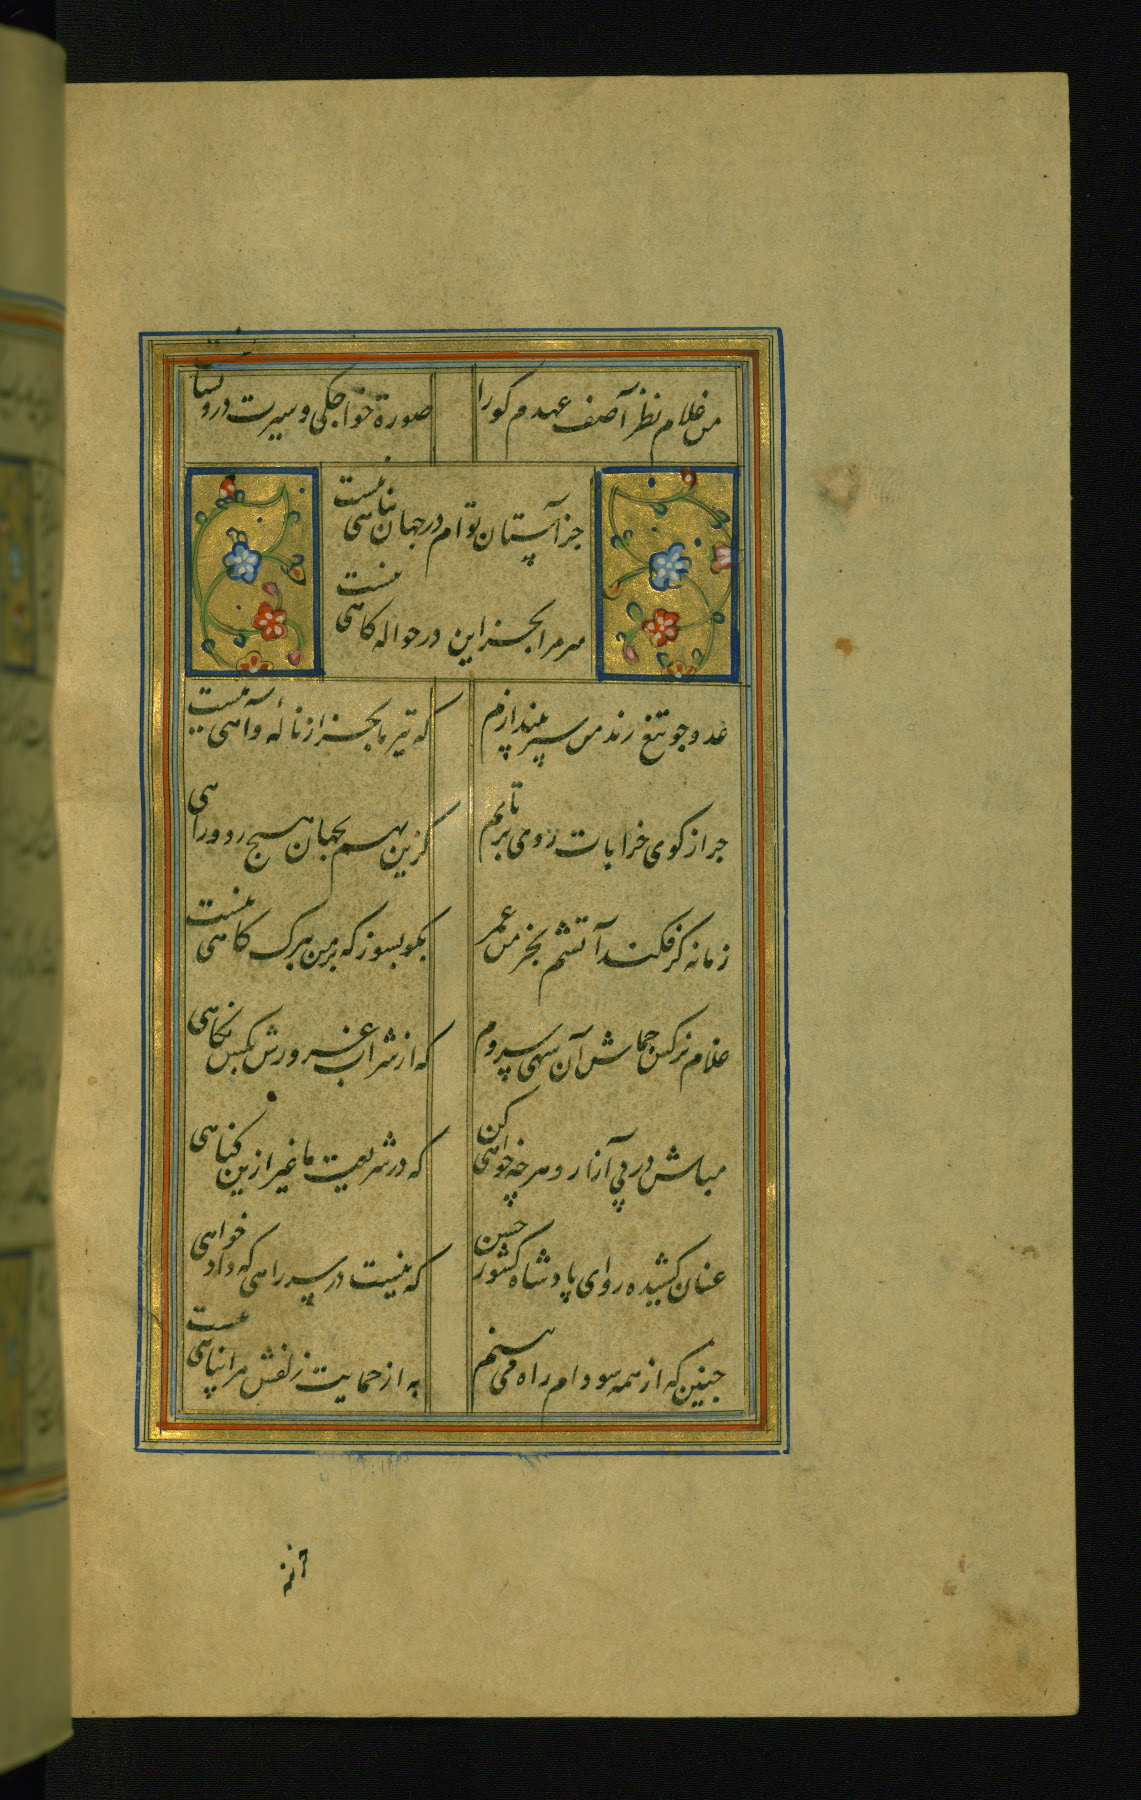 من غلام نظر آصف عهدم کو را
صورة خواجکی و سیرت درویشانست
جز آستان توام در جهان پناهی نیست
سر مرا بجز این در حواله کاهی نیست
عدو چو تیغ زند من سپر بیندازم
که تیر ما بجز از ناله و آهی نیست
چرا ز کوی خرابات روی برتابم
کزین بهم بجهان هیچ رد و راهی
زمانه کر فکند آتشم بخرمن عمر
بکو بسوز که بر من ببرک کاهی نیست
غلام نرکس جماش آن سهی سروم
که از شراب غرورش بکس نکاهی
مباش در پی آزار و هرچه خواهی کن
که در شریعت ما غیر ازین کناهی
عنان کشیده رو ای پادشاه کشور حسن
که نیست در سر راهی که دادخواهی
چنین که از همه سو دام راه می بینم
به از حمایت زلفش مرا پناهی نیست